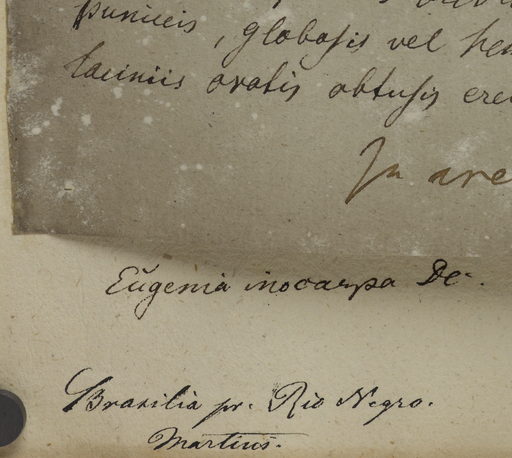 puniceis, globosis vel
laciniis ovatis obtusis
In
Eugenia inocarpa DC.
Brasilia pr. Rio Negro.
Martius.